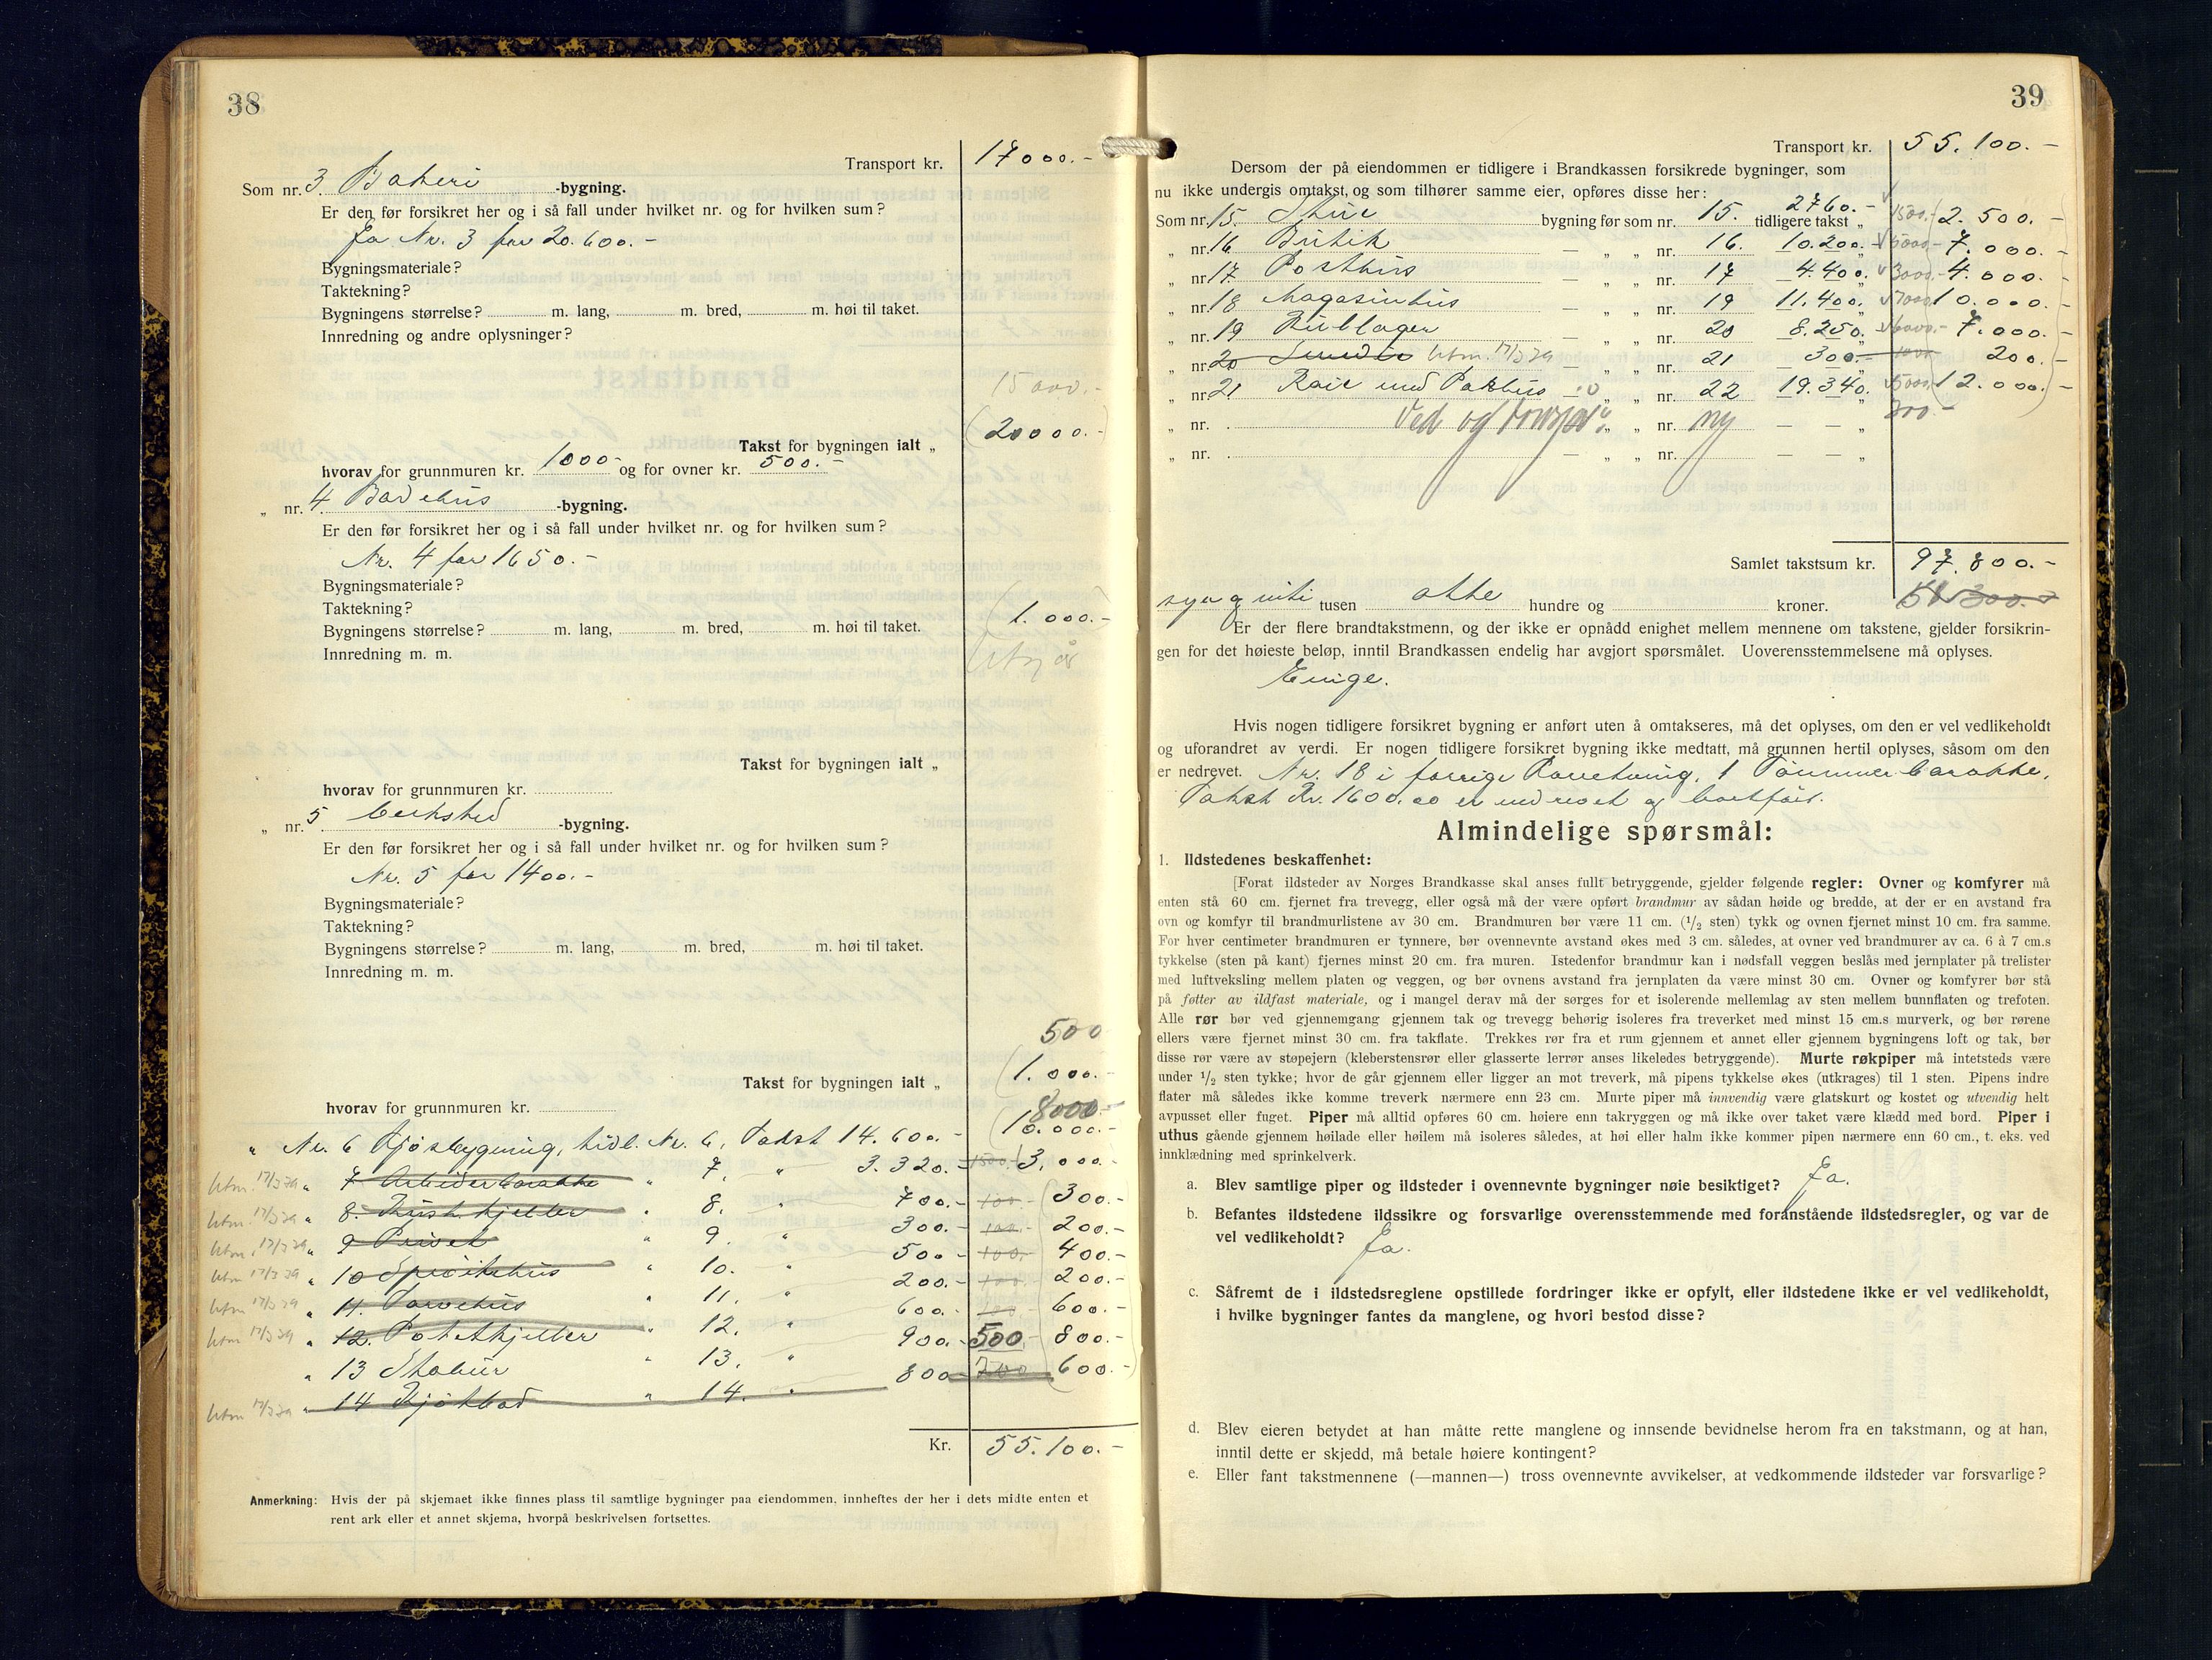 38
Transport kr. 17000.-
Som nr. 3 Bakeri -bygning.
Er den før forsikret her og i så fall under hvilket nr. og for hvilken sum?
Ja Nr. 3 for 20.600.-
Bygningsmateriale?
Taktekning?
Bygningens størrelse? m. lang, m. bred, m. høi til taket.
Innredning og andre oplysninger?
15000.-
Takst for bygningen ialt „ (20000.-)
hvorav for grunnmuren kr. 1000.- og for ovner kr. 500.-
„ nr. 4 Badehus -bygning.
Er den før forsikret her og i så fall under hvilket nr. og for hvilken sum?
Nr. 4 for 1650.-
Bygningsmateriale?
Taktekning?
Bygningens størrelse? m. lang, m. bred, m. høi til taket. (1.000.-
Innredning m. m. Utgår
Takst for bygningen ialt „
hvorav for grunnmuren kr.
„ nr. 5 Verksted -bygning.
Er den før forsikret her og i så fall under hvilket nr. og for hvilken sum?
Nr. 5 for 1400.-
Bygningsmateriale?
Taktekning?
Bygningens størrelse? m. lang, m. bred, m. høi til taket.
Innredning m. m.
500
Takst for bygningen ialt „ (1.000.-
hvorav for grunnmuren kr. 8000.-
„ Nr. 6 Fjøsbygning, tidl. Nr. 6, Takst 14.600.- (10.000.-
Utm. 17/3 39 „ 7 Arbeiderbarakke „ 7, „ 3.320.- 1500.- (3.000.-
Utm. 17/3 39 „ 8. kjeller „ 8. „ 700.- 100.- (300.-
Utm. 17/3 39 „ 9 Privet „ 9. „ 300.- 100.- 200.-
Utm. 17/3 39 „ 10 Sprøitehus „ 10. „ 500.- 100.- 400.-
Utm. 17/3 39 „ 11. Torvehus „ 11. „ 200.- 100.- 200.-
Utm. 17/3 39 „ 12. Potetkjeller „ 12. „ 600.- 600.-
„ 13 Stabur „ 13. „ 900.- 500.- 800.-
Utm 17/3 39 „ 14 Kjøtbod „ 14. „ 800 200 (600.-
Kr. 55.100.-
Anmerkning: Hvis der på skjemaet ikke finnes plass til samtlige bygninger paa eiendommen, innheftes der her i dets midte enten et
rent ark eller et annet skjema, hvorpå beskrivelsen fortsettes.
39
Transport kr. 55.100.-
Dersom der på eiendommen er tidligere i Brandkassen forsikrede bygninger, som
nu ikke undergis omtakst, og som tilhører samme eier, opføres disse her:
Som nr. 15. Skur bygning før som nr. 15. tidligere takst „ 2760.- 1500.- (2.500.-
„ nr. 16 Butik — „ „ nr. 16. 10.200.- 5000.- 7.000.-
„ nr. 17. Posthus — „ „ nr. 17 4.400. 3000.- 4.000.-
„ nr. 18 Magasinhus — „ „ nr. 19 11.400. 7000 10.000.-
„ nr. 19 — „ „ nr. 20 8.250. 6000.- 7.000.-
„ nr. 20 Smedie Utm. 17/3 39 „ „ nr. 21 300.- 100 200.-
„ nr. 21 Kaie med Pakhus „ „ nr. 22 19.340. 5000. 12.000.-
„ nr. Ved og „ nr. ny — — „ 300.-
„ nr. — „ „ nr. — — „
Samlet takstsum kr. 97.800.-
syv og nitti tusen otte hundre og kroner.
Er der flere brandtakstmenn, og der ikke er opnådd enighet mellem mennene om takstene, gjelder forsikrin-
gen for det høieste beløp, inntil Brandkassen endelig har avgjort spørsmålet. Uoverensstemmelsene må oplyses.
Enige.
Hvis nogen tidligere forsikret bygning er anført uten å omtakseres, må det oplyses, om den er vel vedlikeholdt
og uforandret av verdi. Er nogen tidligere forsikret bygning ikke medtatt, må grunnen hertil oplyses, såsom om den
er nedrevet. Nr. 18 i forrige Forretning, 1 Tømmerbarakke,
Takst Kr. 1600.00 er nedrevet og bortført.
Almindelige spørsmål:
1. Ildstedenes beskaffenhet:
[Forat ildsteder av Norges Brandkasse skal anses fullt betryggende, gjelder følgende regler: Ovner og komfyrer må
enten stå 60 cm. fjernet fra trevegg, eller også må der være opført brandmur av sådan høide og bredde, at der er en avstand fra
ovn og komfyr til brandmurlistene av 30 cm. Brandmuren bør være 11 cm. (1/2 sten) tykk og ovnen fjernet minst 10 cm. fra samme.
For hver centimeter brandmuren er tynnere, bør ovennevnte avstand økes med 3 cm. således, at ovner ved brandmurer av ca. 6 à 7 cm.s
tykkelse (sten på kant) fjernes minst 20 cm. fra muren. Istedenfor brandmur kan i nødsfall veggen beslås med jernplater på trelister
med luftveksling mellem platen og veggen, og bør ovnens avstand fra jernplaten da være minst 30 cm. Ovner og komfyrer bør stå
på føtter av ildfast materiale, og i mangel derav må der sørges for et isolerende mellemlag av sten mellem bunnflaten og trefoten.
Alle rør bør ved gjennemgang gjennem tak og trevegg behørig isoleres fra treverket med minst 15 cm.s murverk, og bør rørene
ellers være fjernet minst 30 cm. fra takflate. Trekkes rør fra et rum gjennem et annet eller gjennem bygningens loft og tak, bør
disse rør være av støpejern (kleberstensrør eller glasserte lerrør anses likeledes betryggende). Murte røkpiper må intetsteds være
under 1/2 sten tykke; hvor de går gjennem eller ligger an mot treverk, må pipens tykkelse økes (utkrages) til 1 sten. Pipens indre
flater må således ikke komme treverk nærmere enn 23 cm. Murte piper må innvendig være glatskurt og kostet og utvendig helt
avpusset eller fuget. Piper må alltid opføres 60 cm. høiere enn takryggen og må ikke over taket være klædd med bord. Piper i
uthus gående gjennem høilade eller høilem må isoleres således, at høi eller halm ikke kommer pipen nærmere enn 60 cm., t. eks. ved
innklædning med sprinkelverk.
a. Blev samtlige piper og ildsteder i ovennevnte bygninger nøie besiktiget? Ja.
b. Befantes ildstedene ildssikre og forsvarlige overensstemmende med foranstående ildstedsregler, og var de
vel vedlikeholdt? Ja.
c. Såfremt de i ildstedsreglene opstillede fordringer ikke er opfylt, eller ildstedene ikke er vel vedlikeholdt,
i hvilke bygninger fantes da manglene, og hvori bestod disse?
d. Blev eieren betydet at han måtte rette manglene og innsende bevidnelse herom fra en takstmann, og at han,
inntil dette er skjedd, må betale høiere kontingent?
e. Eller fant takstmennene (—mannen—) tross ovennevnte avvikelser, at vedkommende ildsteder var forsvarlige?